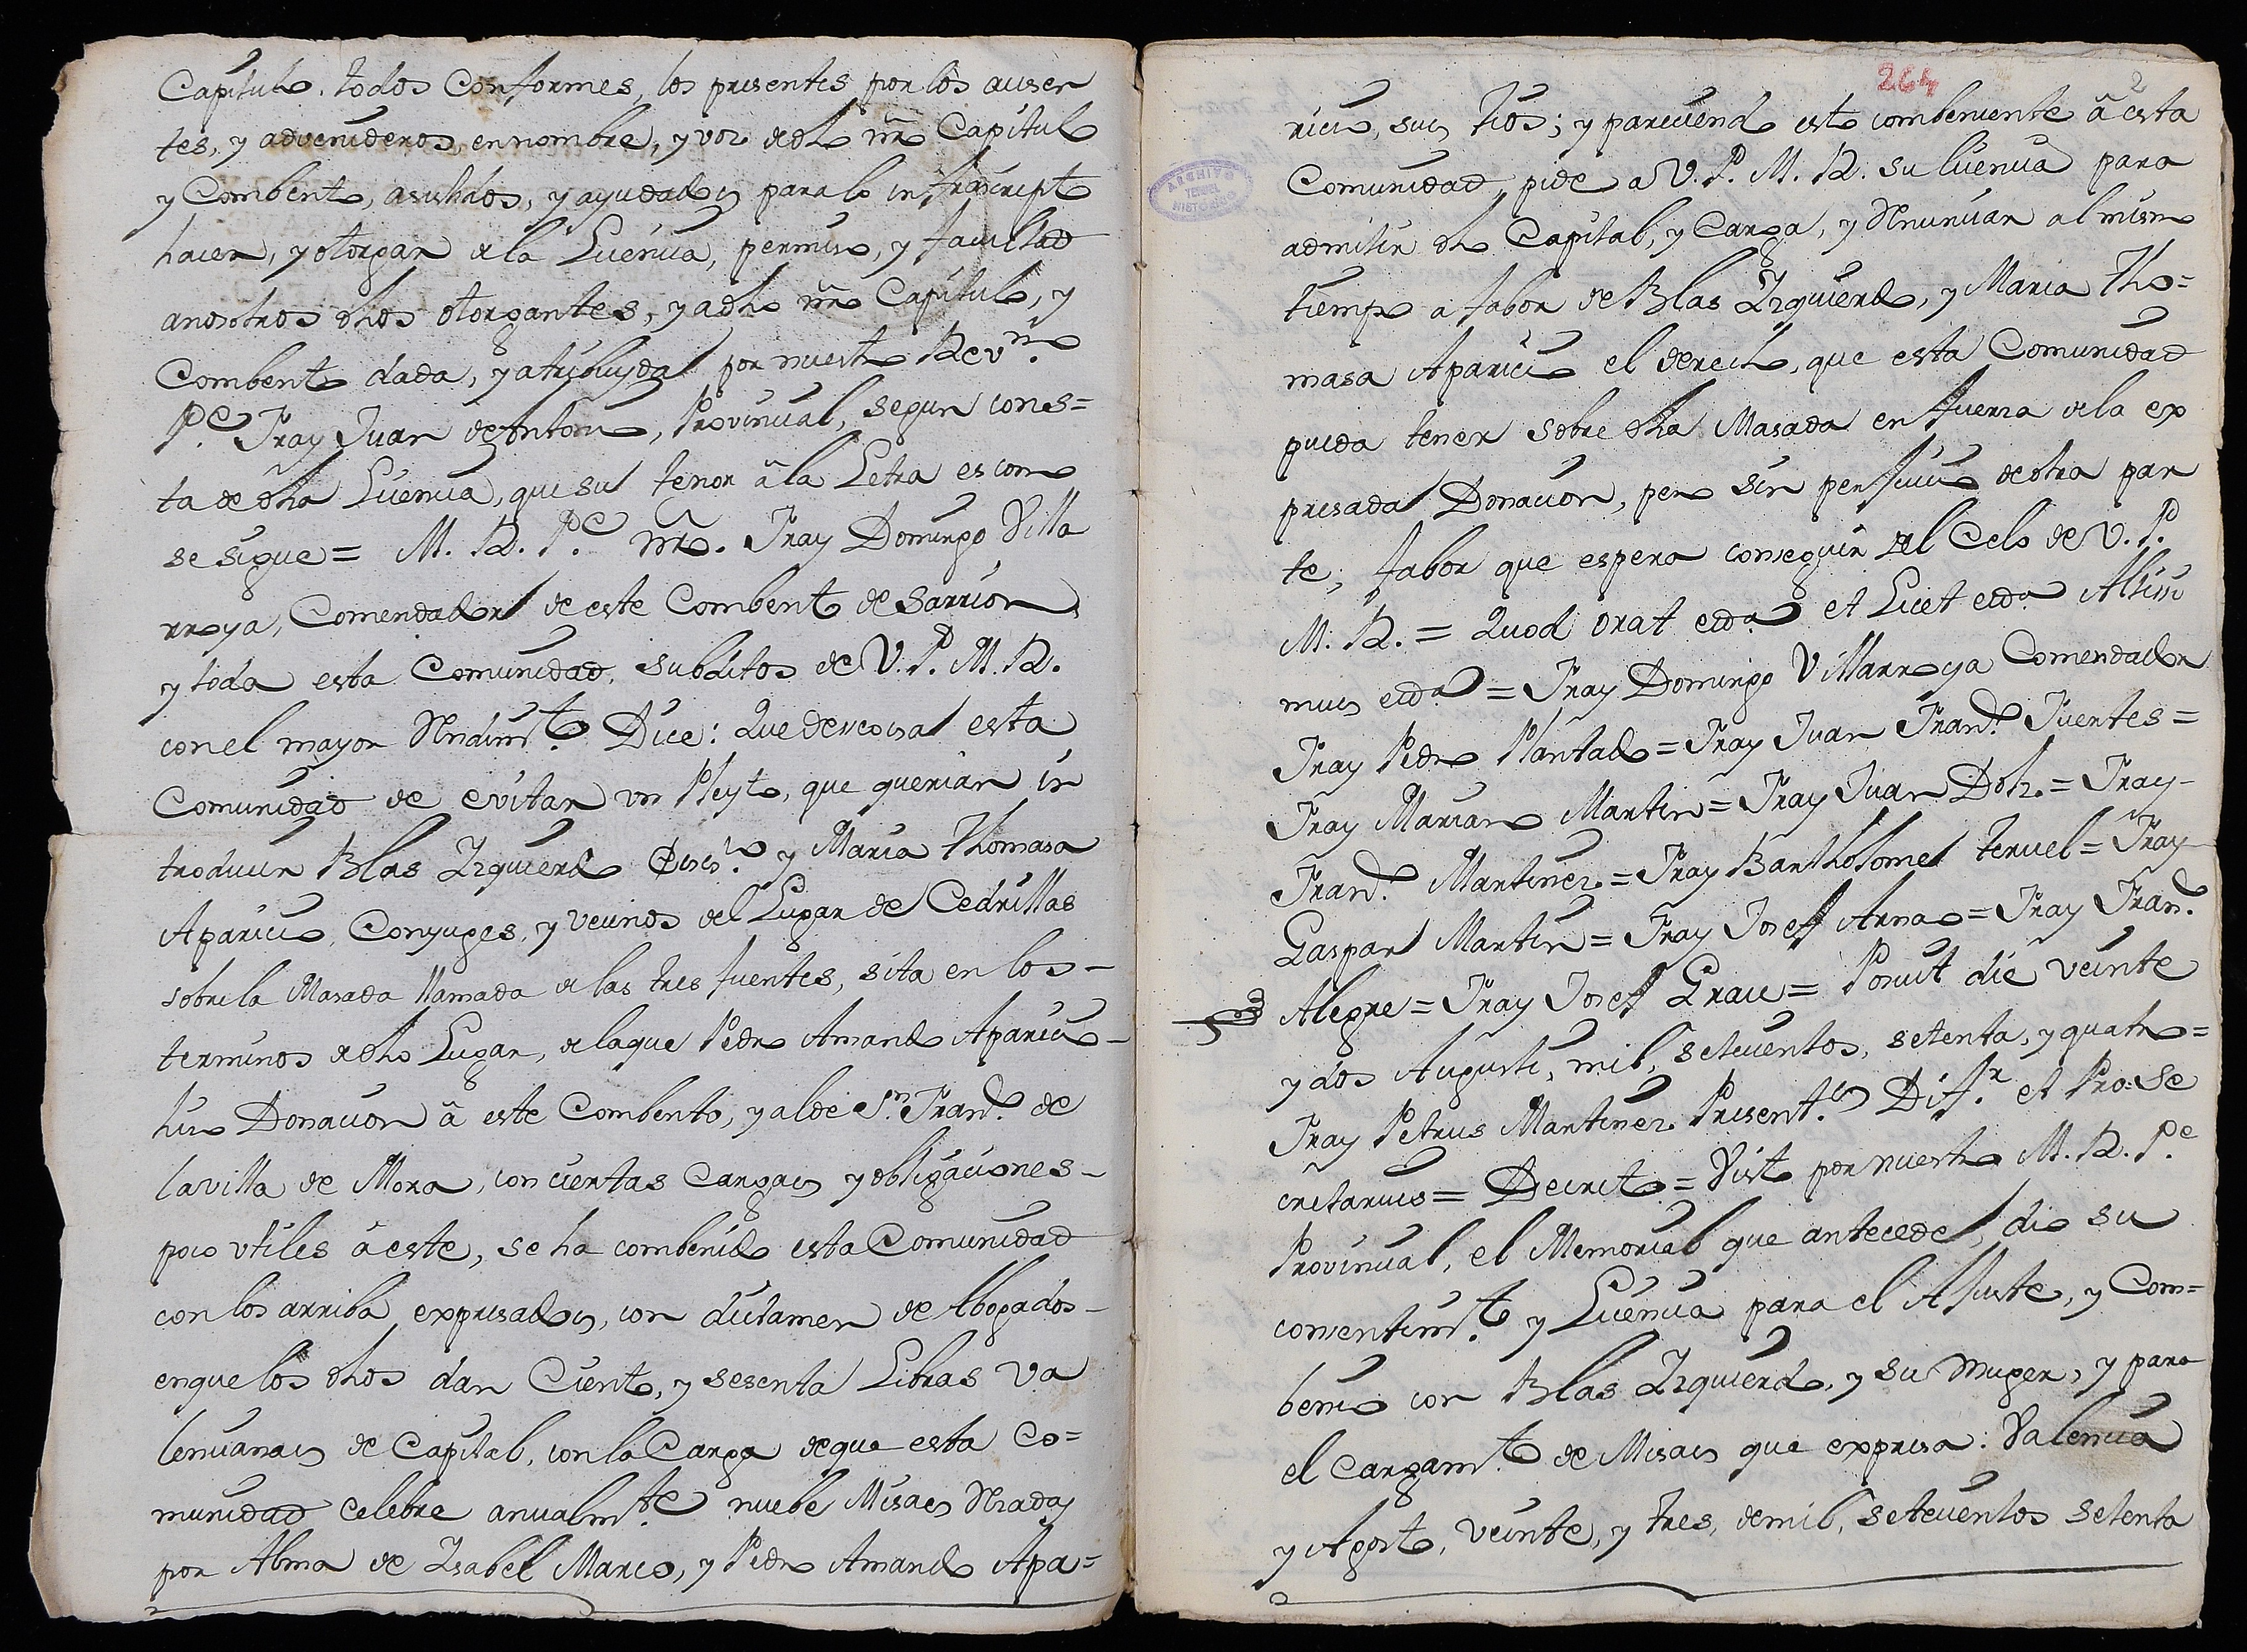 Capitulo, todos Conformes, los presentes por los ausen
tes, y advenideros, en nombre, y voz de dho nro Capitulo
y Combento, asistidos, y ayudados para lo infrascripto
hacer, y otorgar de la Licencia, permiso, y facultad
a nosotros dhos otorgantes, y a dho nro Capitulo, y
Combento dada, y atribuyda por nuestro Revmo.
Pe. Fray Juan de Antonio, Provincial, segun cons=
ta de dha Licencia, que su tenor â la Letra es como
se sigue = M. R. Pe. nro. Fray Domingo Villa
rroya, Comendador de este Combento de Sarrion,
y toda esta Comunidad, subditos de V. P. M. R.
con el mayor Rndimto. Dice: Que deseosa esta
Comunidad de evitar un Pleyto, que querian in
troducir Blas Izquierdo y Maria Thomasa
Aparicio, Conyuges, y vecinos del Lugar de Cedrillas
sobre la Masada llamada de las tres fuentes, sita en los -
terminos de dho Lugar, de la que Pedro Amando Aparicio -
hizo Donacion â este Combento, y al de Sn. Franco. de
la villa de Mora, con ciertas Cargas y obligaciones -
poco utiles â este, se ha combenido esta Comunidad
con los arriba expresados, con dictamen de Abogados -
en que los dhos dan Ciento, y sesenta Libras Va
lencianas de Capital, con la Carga de que esta Co=
munidad celebre anualmte. nuebe Misas Rzadas
por Alma de Isabel Marco, y Pedro Amando Apa=
264 2
ARCHIVO
TERUEL
HISTORICO
ricio, sus tios; y pareciendo esto combeniente â esta
Comunidad, pide a V. P. M. R. su licencia para
admitir dho Capital, y Carga, y Rnunciar al mismo
tiempo a fabor de Blas Izquierdo, y Maria Tho=
masa Aparicio el derecho, que esta Comunidad
pueda tener sobre dha Masada en fuerza de la ex
presada Donacion, pero sin perjuicio de otra par
te; fabor que espera conseguir del Celo de V. P.
M. R. = Quod orat eida. et Licet eida. Altissi
mus eida. = Fray Domingo Villarroya Comendador
Fray Pedro Plantado = Fray Juan Franco. Fuentes =
Fray Mariano Martin = Fray Juan Dolz. = Fray -
Franco. Martinez = Fray Bartholome Teruel = Fray
Gaspar Martin = Fray Josef Arnao = Fray Franco.
Alegre = Fray Josef Grau = Posuit die veinte
y dos Augusti, mil, setecientos, setenta, y quatro =
Fray Petrus Martinez Present.us Difr. et Pro: Se
cretarius = Decreto = Visto por nuestro M. R. Pe.
Provincial, el Memorial que antecede, dio su
consentimto. y Licencia para el Ajuste, y Com=
benio con Blas Izquierdo, y su Muger, y para
el cargamto. de Misas que expresa. Valencia
y Agosto, veinte, y tres, de mil, setecientos setenta